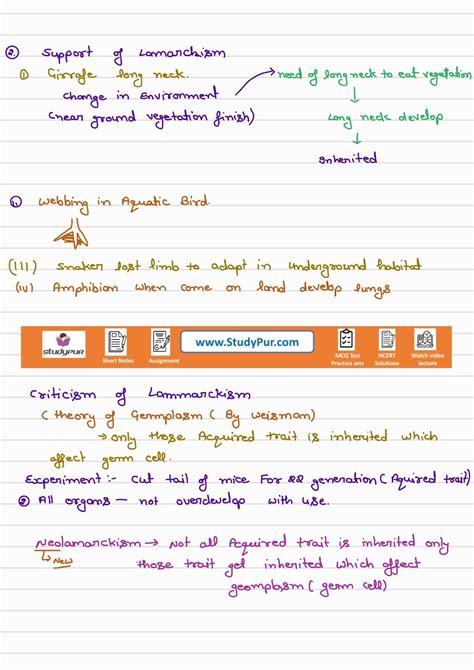 ② Support of Lamarckism
① Girrafe long neck.
Change in Environment → need of long neck to eat vegetation
(near ground vegetation finish)
↓
Long neck develop
↓
Inherited
Webbing in Aquatic Bird.
(III) Snakes lost limb to adapt in underground habitat
(iv) Amphibian when come on land develop lungs
studypur
Short Notes
Assignment
www.StudyPur.com
MCQ Test
Practice sets
NCERT
Solutions
Watch video
lecture
Criticism of Lammarckism
(theory of Germplasm ( By weisman)
→ only those Acquired trait is inherited which
affect germ cell.
Experiment :- Cut tail of mice for 22 generation ( Aquired trait)
② All organs — not overdevelop with use.
Neolamarckism → Not all Acquired trait is inherited only
↳ New
those trait get inherited which affect
geomplasm ( germ cell)